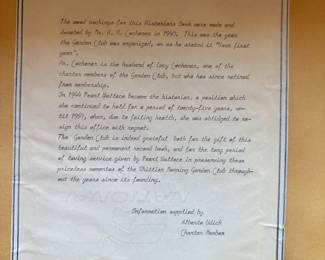 The wood backings for this Historians Book were made and
donated by Mr. A. R. Cochener in 1940. This was the year
the Garden Club was organized, or as he stated is "Your first
year".
Mr. Cochener is the husband of Lucy Cochener, one of the
charter members of the Garden Club, but who has since retired
from membership.
In 1944 Pearl Wallace became the historian, a position which
she continued to hold for a period of twenty-five years, un-
til 1969, when, due to failing health, she was obliged to re-
sign this office with regret.
The Garden Club is indeed grateful both for the gift of this
beautiful and permanent record book, and for the long period
of loving service given by Pearl Wallace in preserving these
priceless momentos of the Whittier Morning Garden Club through-
out the years since its founding.
Information supplied by
Alberta
Charter Member